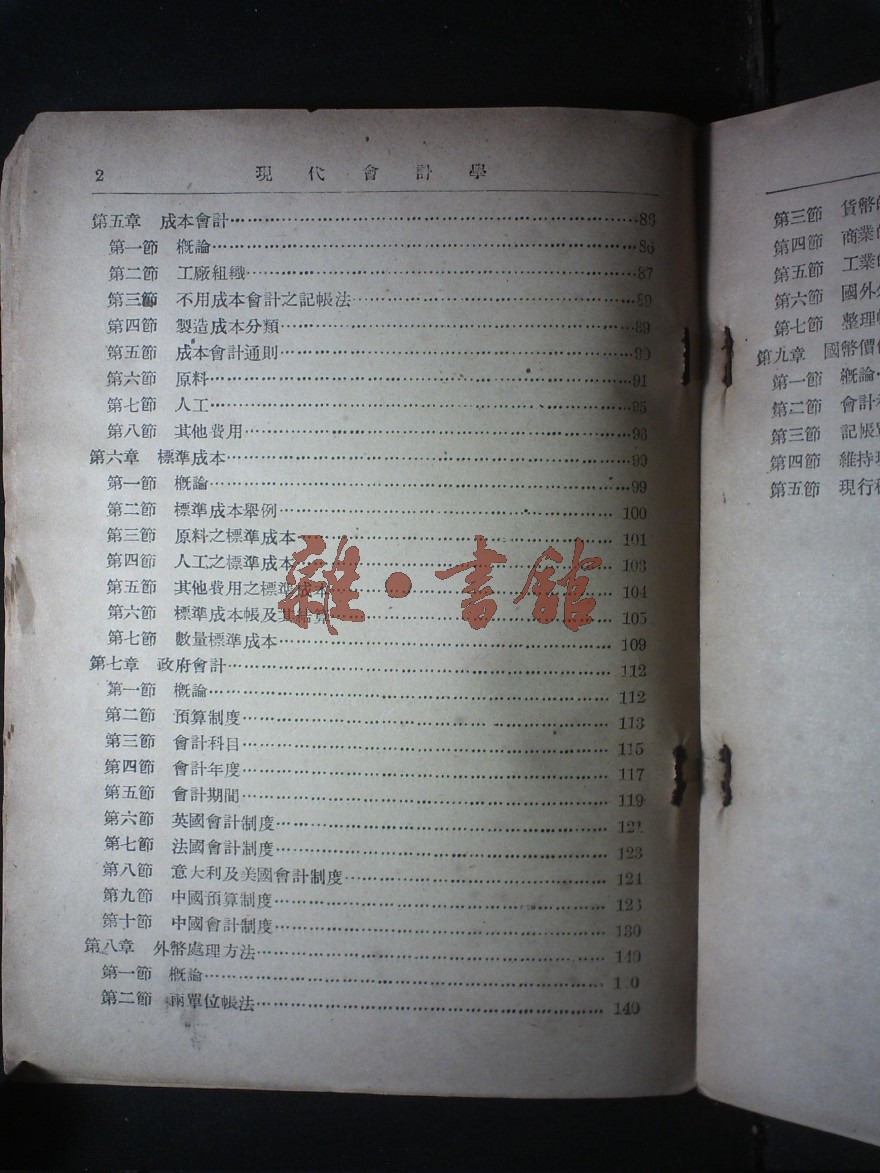 2 現代會計學
第五章 成本會計……86
第一節 概論……86
第二節 工廠組織……87
第三節 不用成本會計之記帳法……89
第四節 製造成本分類……89
第五節 成本會計通則……90
第六節 原料……91
第七節 人工……95
第八節 其他費用……96
第六章 標準成本……99
第一節 概論……99
第二節 標準成本舉例……100
第三節 原料之標準成本……101
第四節 人工之標準成本……103
第五節 其他費用之標準成本……104
第六節 標準成本帳及其結算……105
第七節 數量標準成本……109
第七章 政府會計……112
第一節 概論……112
第二節 預算制度……113
第三節 會計科目……115
第四節 會計年度……117
第五節 會計期間……119
第六節 英國會計制度……121
第七節 法國會計制度……123
第八節 意大利及美國會計制度……124
第九節 中國預算制度……126
第十節 中國會計制度……130
第八章 外幣處理方法……140
第一節 概論……
第二節 兩單位帳法……140
第三節 貨幣的
第四節 商業的
第五節 工業的
第六節 國外
第七節 整理
第九章 國幣價
第一節 概論
第二節 會計
第三節 記帳
第四節 維持
第五節 現行
雜·書館